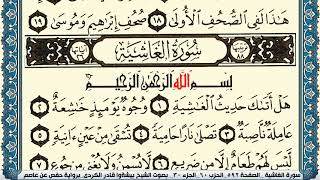 هَٰذَا لَفِى ٱلصُّحُفِ ٱلْأُولَىٰ ١٨ صُحُفِ إِبْرَٰهِيمَ وَمُوسَىٰ ١٩
سُورَةُ الْغَاشِيَةِ
بِسْمِ ٱللَّهِ ٱلرَّحْمَٰنِ ٱلرَّحِيمِ
هَلْ أَتَىٰكَ حَدِيثُ ٱلْغَٰشِيَةِ ١ وُجُوهٌ يَوْمَئِذٍ خَٰشِعَةٌ ٢
عَامِلَةٌ نَّاصِبَةٌ ٣ تَصْلَىٰ نَارًا حَامِيَةً ٤ تُسْقَىٰ مِنْ عَيْنٍ ءَانِيَةٍ ٥
لَّيْسَ لَهُمْ طَعَامٌ إِلَّا مِن ضَرِيعٍ ٦ لَّا يُسْمِنُ وَلَا يُغْنِى مِن جُوعٍ ٧
سورة الغاشية . الصفحة ٥٩٢ . الحزب ٦٠ . الجزء ٣٠ . بصوت الشيخ بيشةوا قادر الكردي . برواية حفص عن عاصم